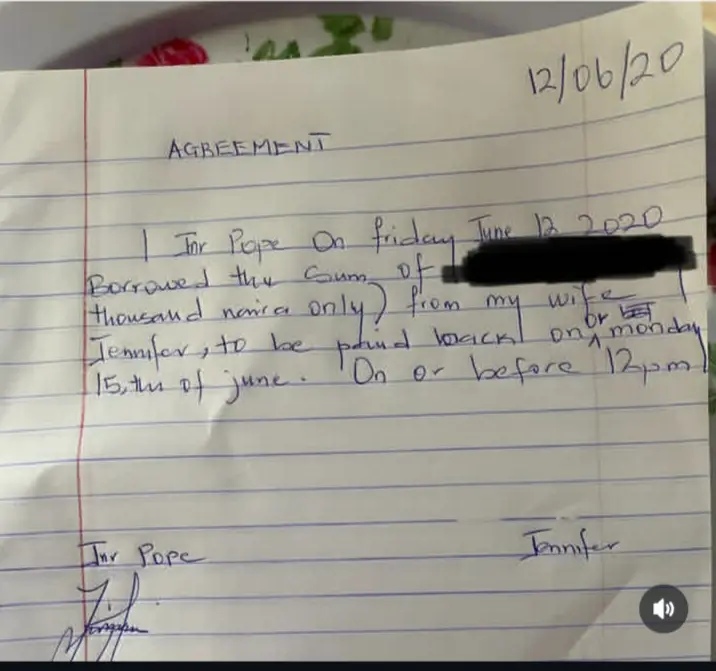 12/06/20
AGREEMENT
I Jnr Pope On friday June 12 2020
Borrowed the Sum of
thousand naira only) from my wife
Jennifer, to be paid back on or monday
15,th of june. On or before 12pm
Jnr Pope
Jennifer